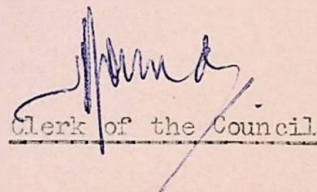 Clerk of the Council